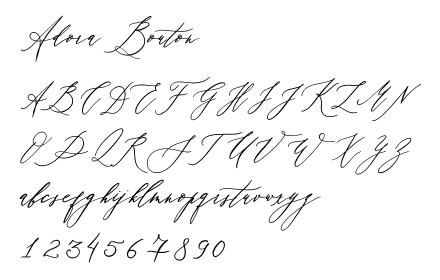 Adora Bouton
A B C D E F G H I J K L M N
O P Q R S T U V W X Y Z
abcdefghijklmnopqrstuvwxyz
1 2 3 4 5 6 7 8 9 0